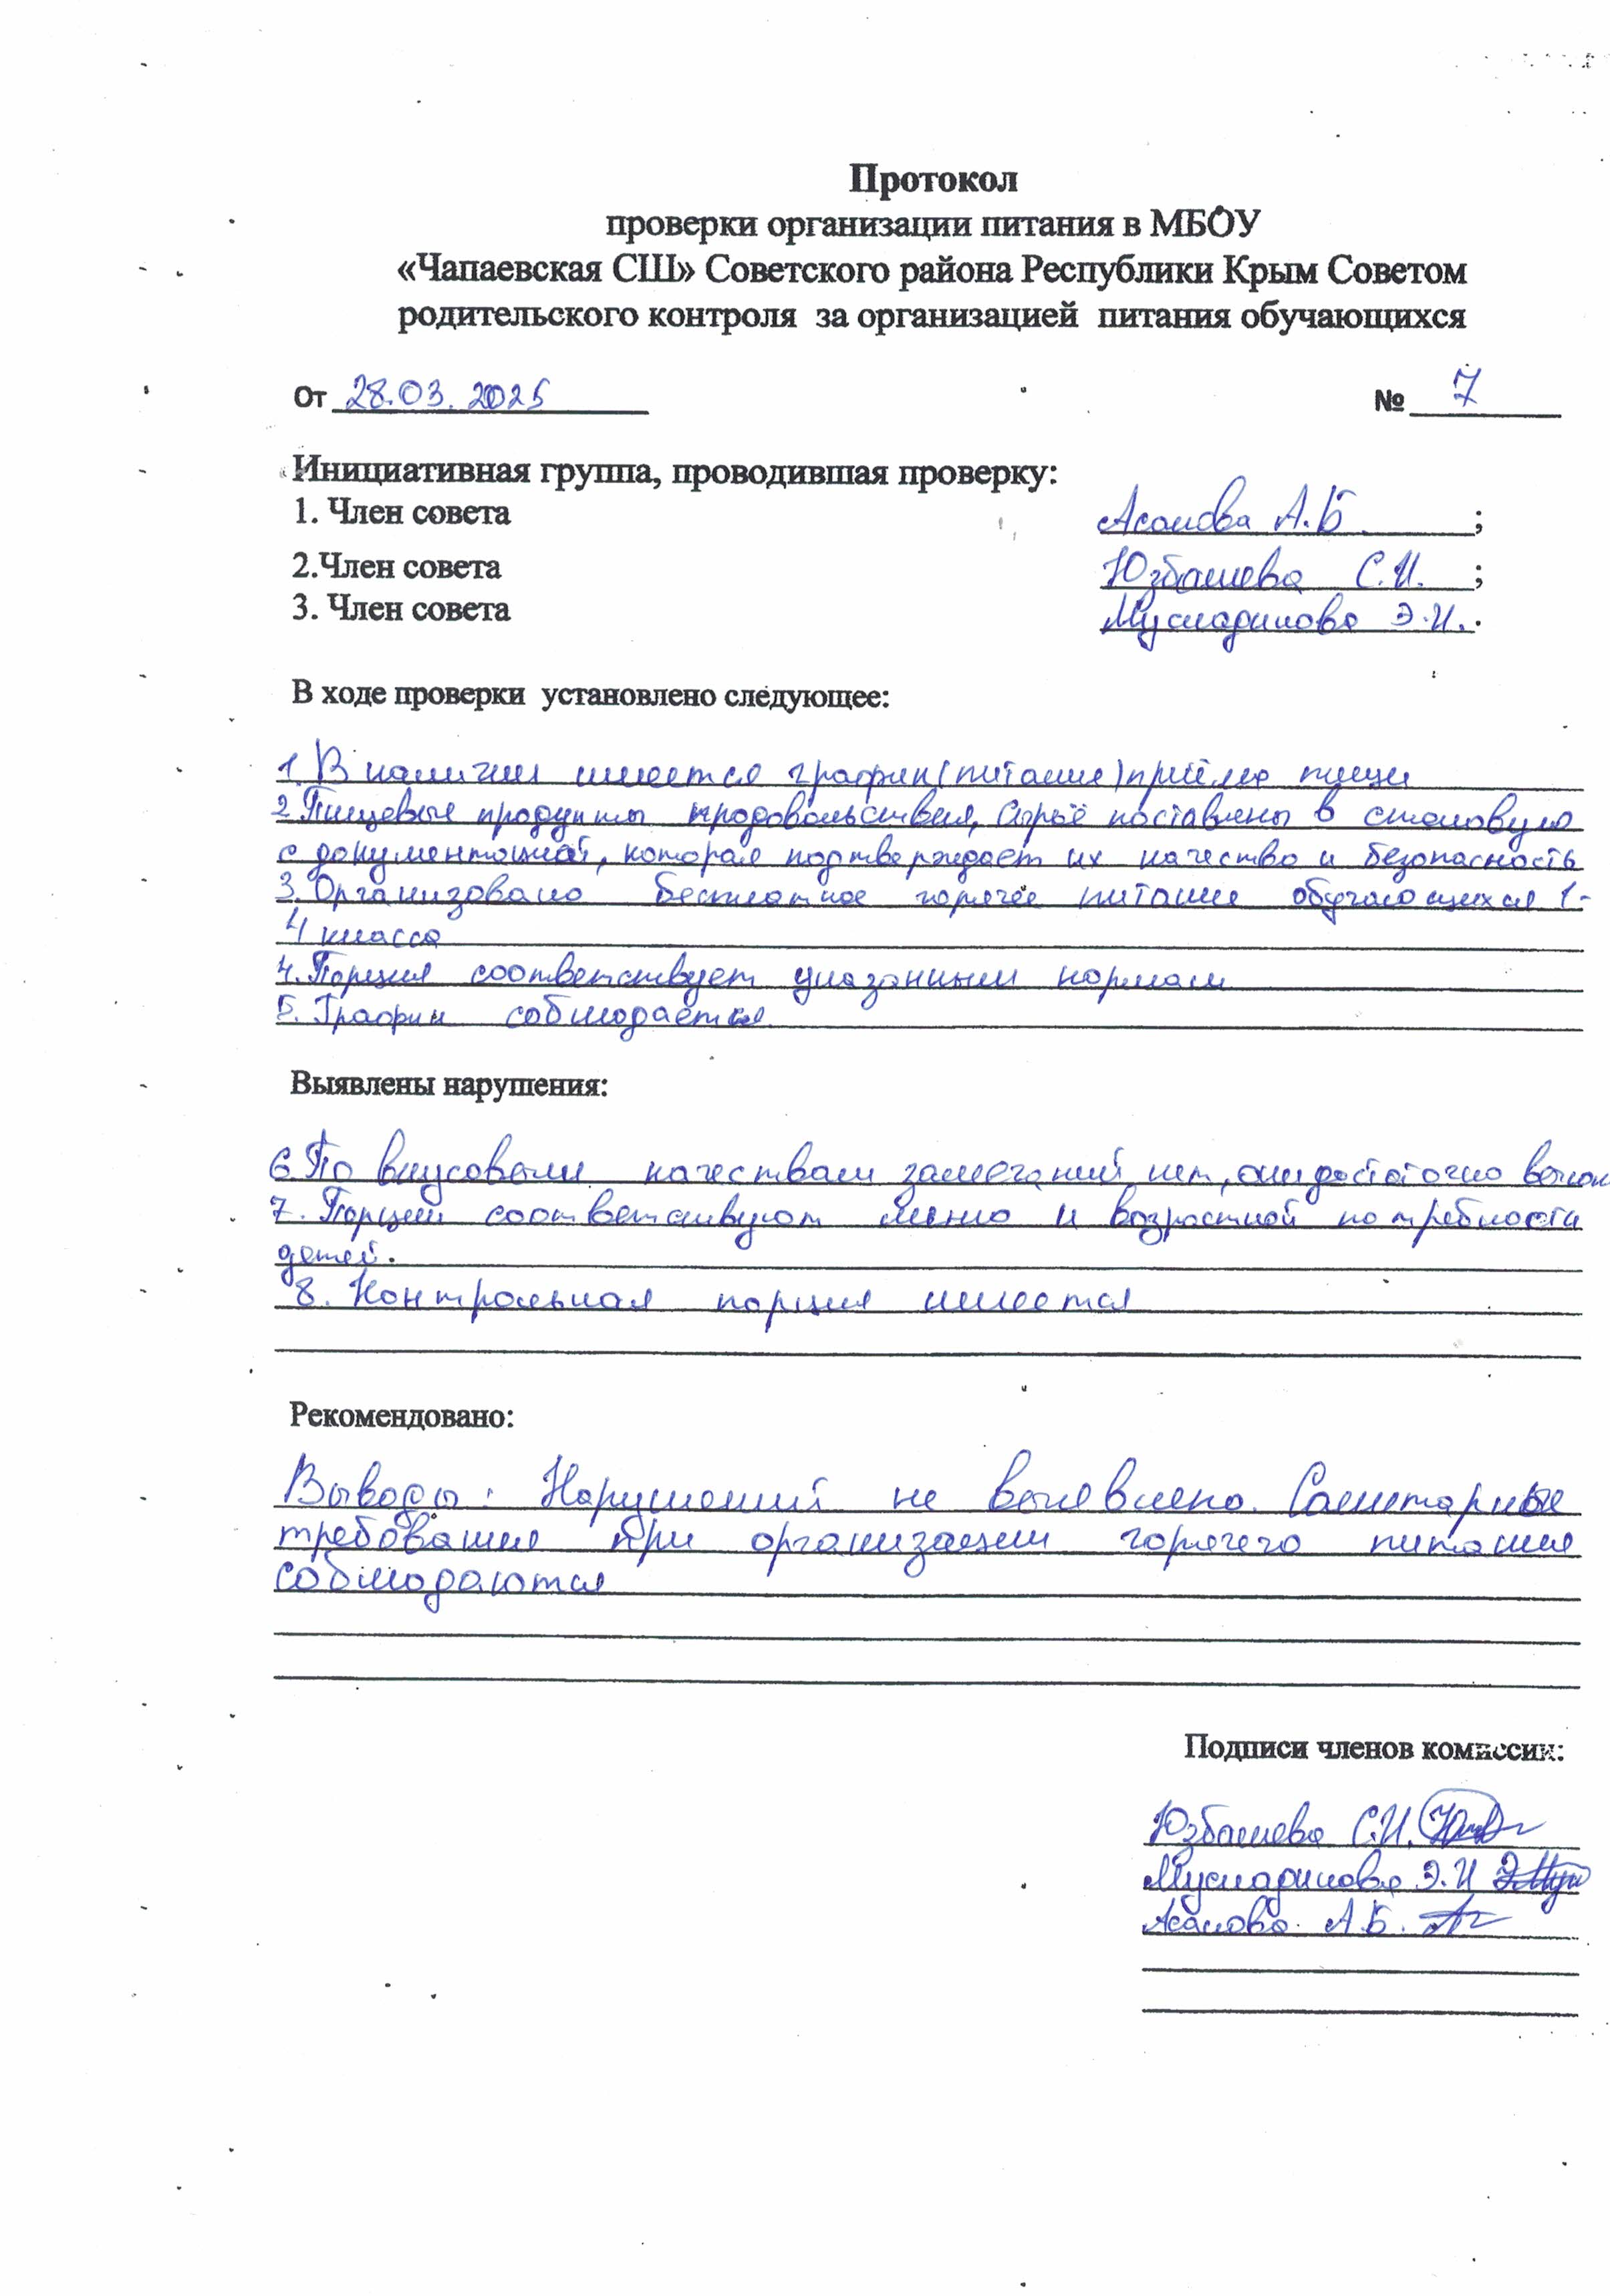 Протокол
проверки организации питания в МБОУ
«Чапаевская СШ» Советского района Республики Крым Советом
родительского контроля за организацией питания обучающихся
От 28.03.2025 № 7
Инициативная группа, проводившая проверку:
1. Член совета Асанова А.Б ;
2.Член совета Юзбашева С.И. ;
3. Член совета Э.И. .
В ходе проверки установлено следующее:
1. В наличии имеется график(питание)приёма пищи
2. Пищевые продукты продовольствия, сырьё поставлены в столовую
с документацией, которая подтверждает их качество и безопасность
3. Организовано бесплатное горячее питание обучающихся 1-
4 класса
4. Порция соответствует указанным нормам
5. График соблюдается
Выявлены нарушения:
6. По вкусовым качествам замечаний нет, они достаточно
7. Порции соответствуют меню и возрастной потребности
детей.
8. Контрольная порция имеется
Рекомендовано:
Выводы: Нарушений не выявлено. Санитарные
требования при организации горячего питания
соблюдаются
Подписи членов комиссии:
Юзбашева С.И.
Э.И
Асанова А.Б.